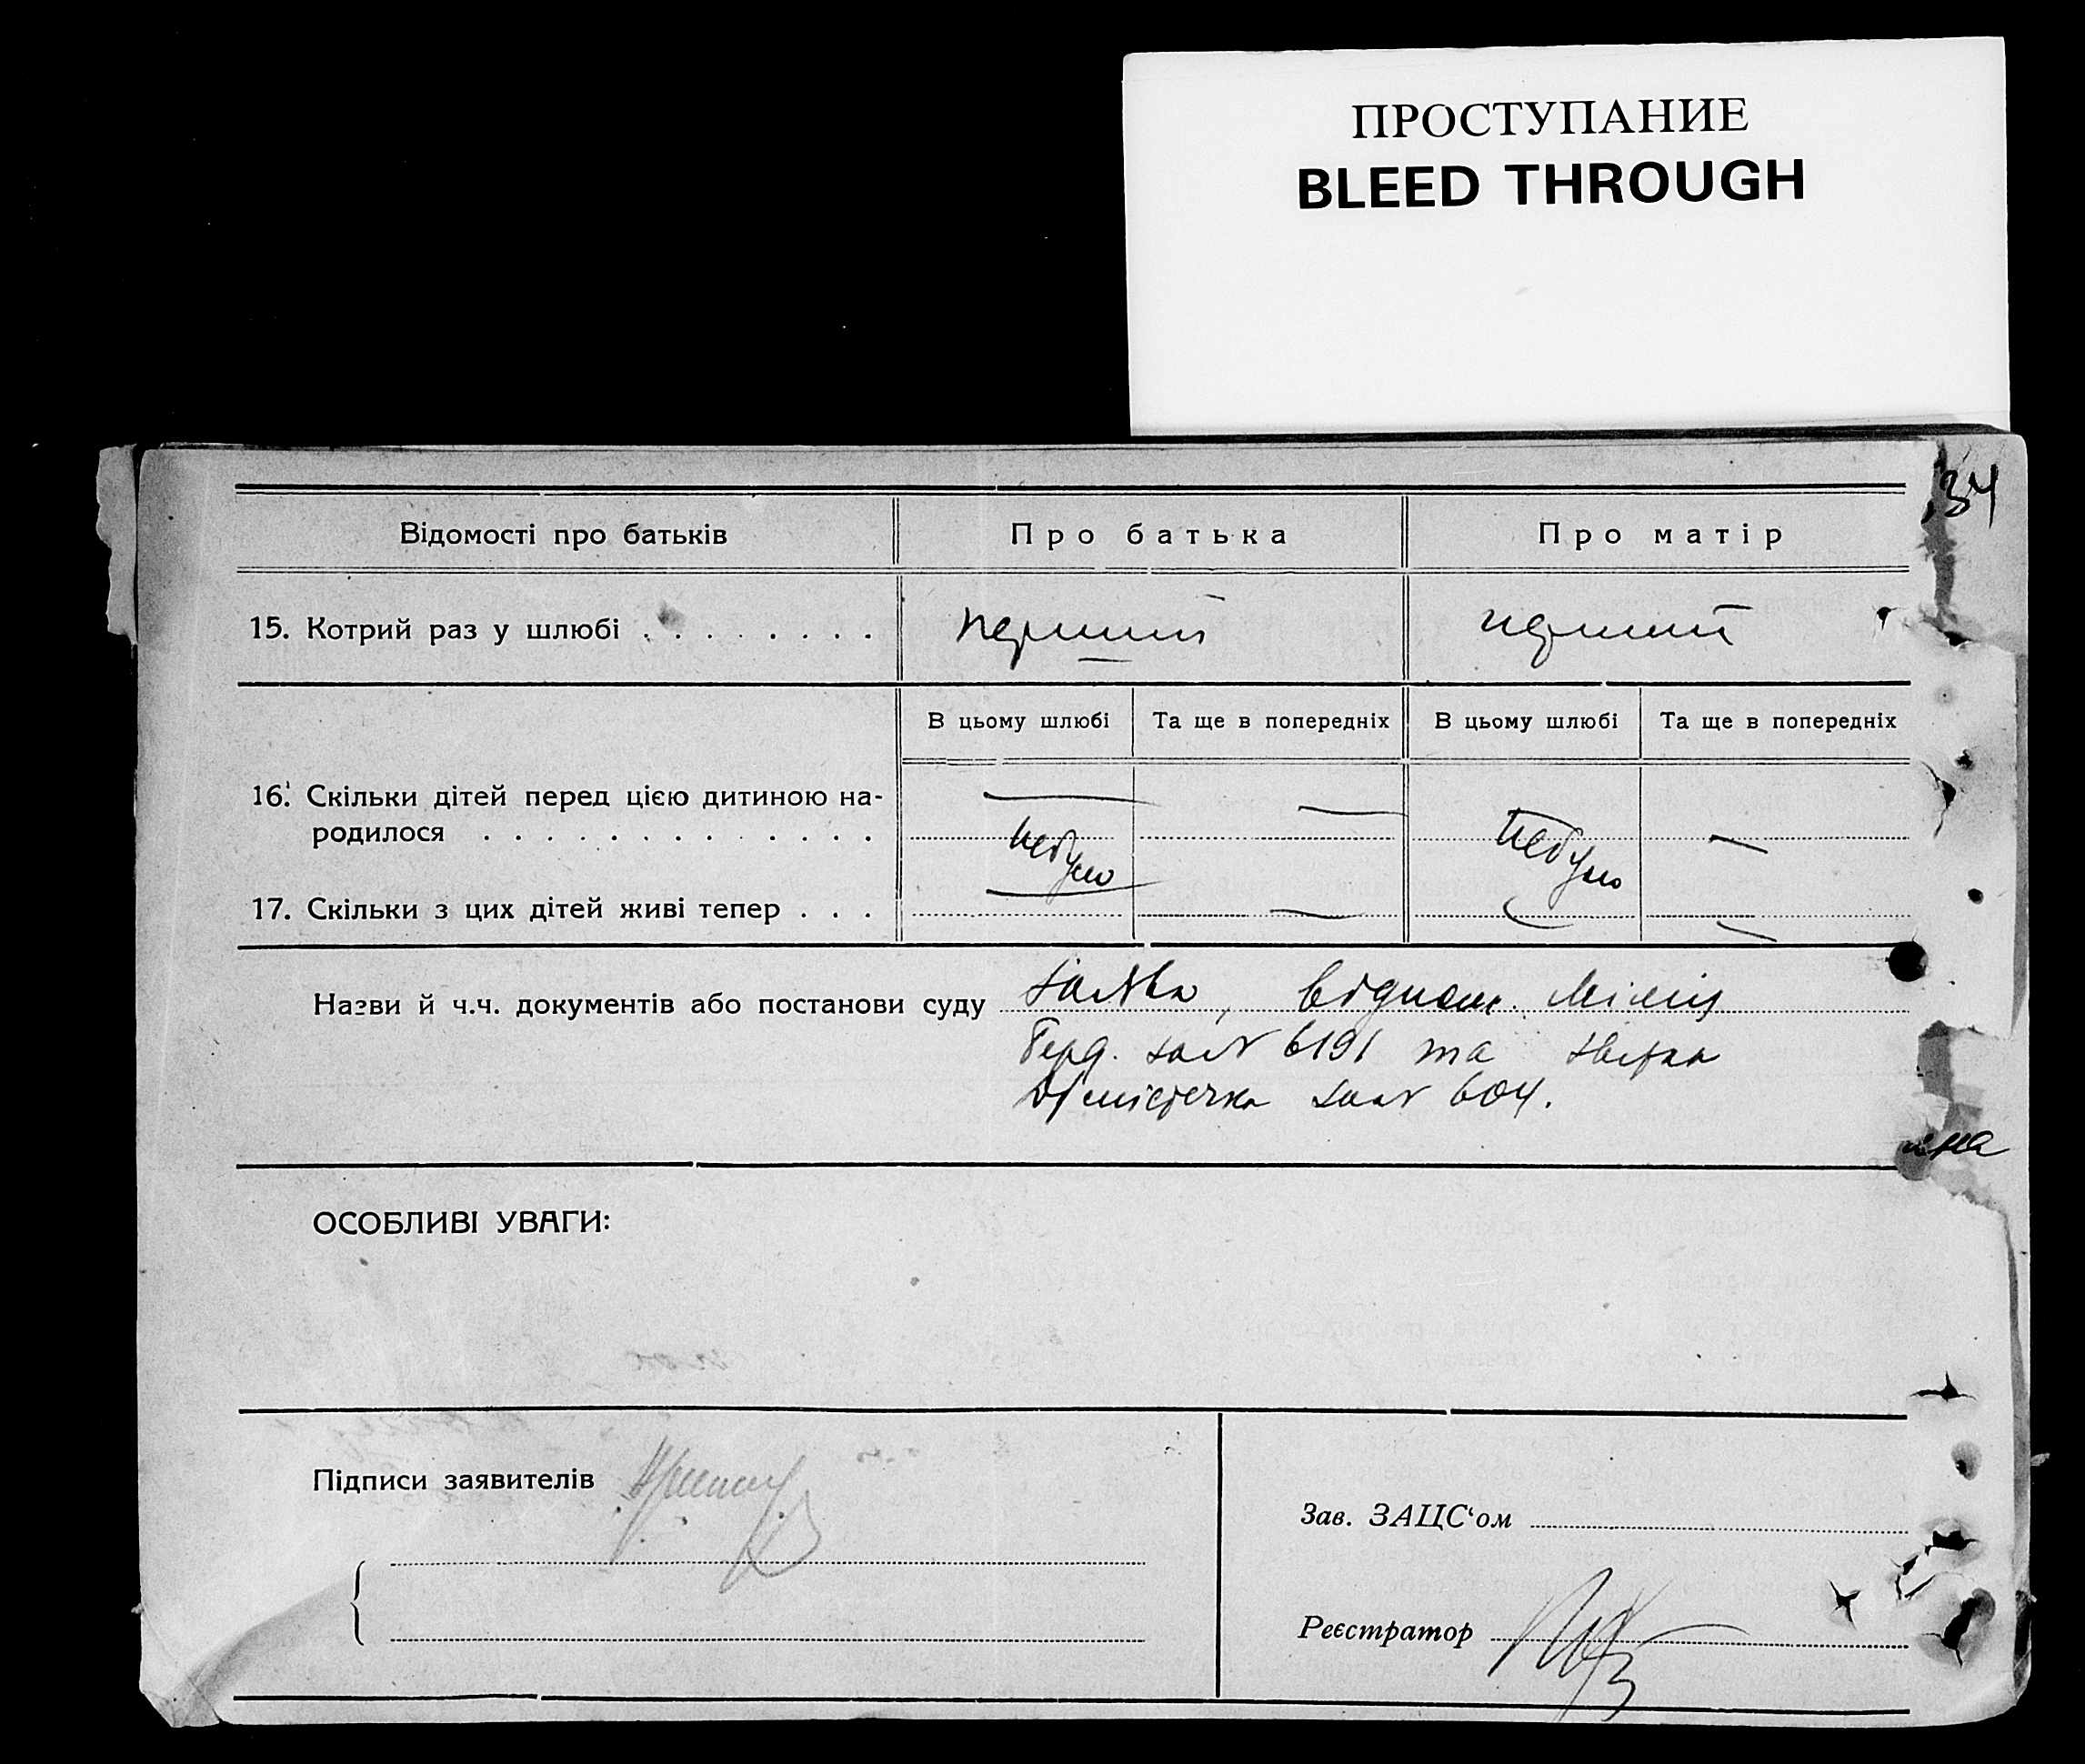 ПРОСТУПАНИЕ
BLEED THROUGH
34
Відомості про батьків
Про батька
Про матір
15. Котрий раз у шлюбі . . . . . . . .
перший
перший
В цьому шлюбі
Та ще в попередніх
В цьому шлюбі
Та ще в попередніх
16. Скільки дітей перед цією дитиною на-
родилося . . . . . . . . . . . . .
небуло
небуло
17. Скільки з цих дітей живі тепер . . .
Назви й ч.ч. документів або постанови суду
заява, віднош. Міліц
Берд. за № 6191 та
за № 604.
ОСОБЛИВІ УВАГИ:
Підписи заявителів
Зав. ЗАЦС‘ом
Реєстратор